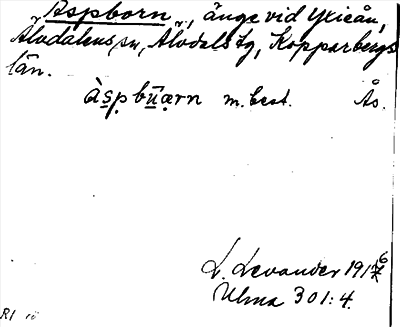 "Aspborn", änge vid Yxieån,
Älvdalens sn, Älvdals tg, Kopparbergs
län.
àspbūærn m. best. Ås.
L. Levander 1916
Ulma 301:4.
R1